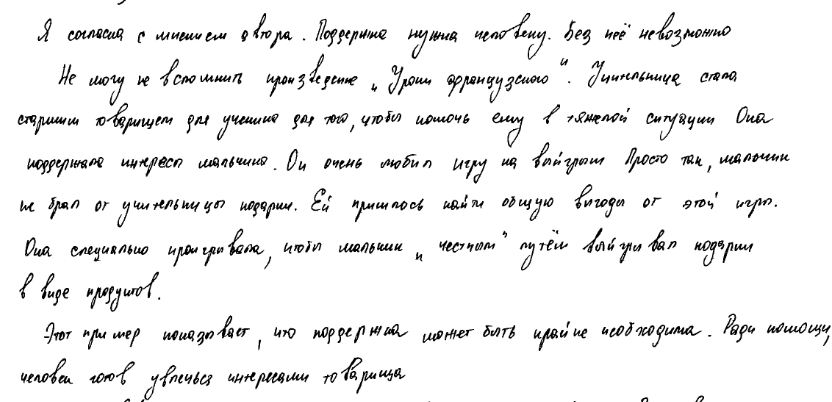 Я согласна с мнением автора. Поддержка нужна человеку. Без неё невозможно
Не могу не вспомнить произведение „Уроки французского". Учительница стала
старшим товарищем для ученика для того, чтобы помочь ему в тяжелой ситуации Она
поддержала интересы мальчика. Он очень любил игру на выйгрыш Просто так, мальчик
не брал от учительницы подарки. Ей пришлось найти общую выгоды от этой игры.
Она специально проигривала, чтобы мальчик „честным" путём выйгрывал подарки
в виде продуктов.
Этот пример показывает, что поддержка может быть крайне необходима. Ради помощи,
человек готов увлечься интересами товарища